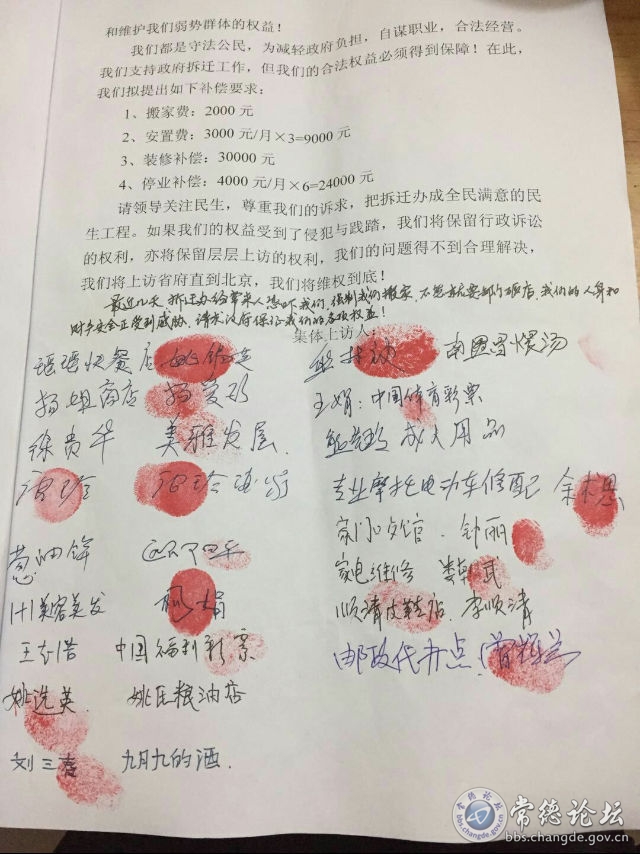 和维护我们弱势群体的权益！
我们都是守法公民，为减轻政府负担，自谋职业，合法经营。
我们支持政府拆迁工作，但我们的合法权益必须得到保障！在此，
我们拟提出如下补偿要求：
1、搬家费：2000 元
2、安置费：3000 元/月×3=9000 元
3、装修补偿：30000 元
4、停业补偿：4000 元/月×6=24000 元
请领导关注民生，尊重我们的诉求，把拆迁办成全民满意的民
生工程。如果我们的权益受到了侵犯与践踏，我们将保留行政诉讼
的权利，亦将保留层层上访的权利，我们的问题得不到合理解决，
我们将上访省府直到北京，我们将维权到底！
最近几天，拆迁办经常来人恐吓我们，强制我们搬家，不然就要砸店，我们的人身和
财产安全正受到威胁，请求政府保证我们的各项权益！
集体上访人：
瑶瑶快餐店
南国汤
杨姐商店 杨爱珍
王娟：中国体育彩票
徐贵华 美雅发屋
成人用品
专业摩托电动车修配
葱油饼
家电维修
1+1美容美发 杨娟
顺清皮鞋店 李顺清
中国福利彩票
邮政代办点
姚选英 姚氏粮油店
刘三春 九月九的酒
常德论坛
bbs.changde.gov.cn